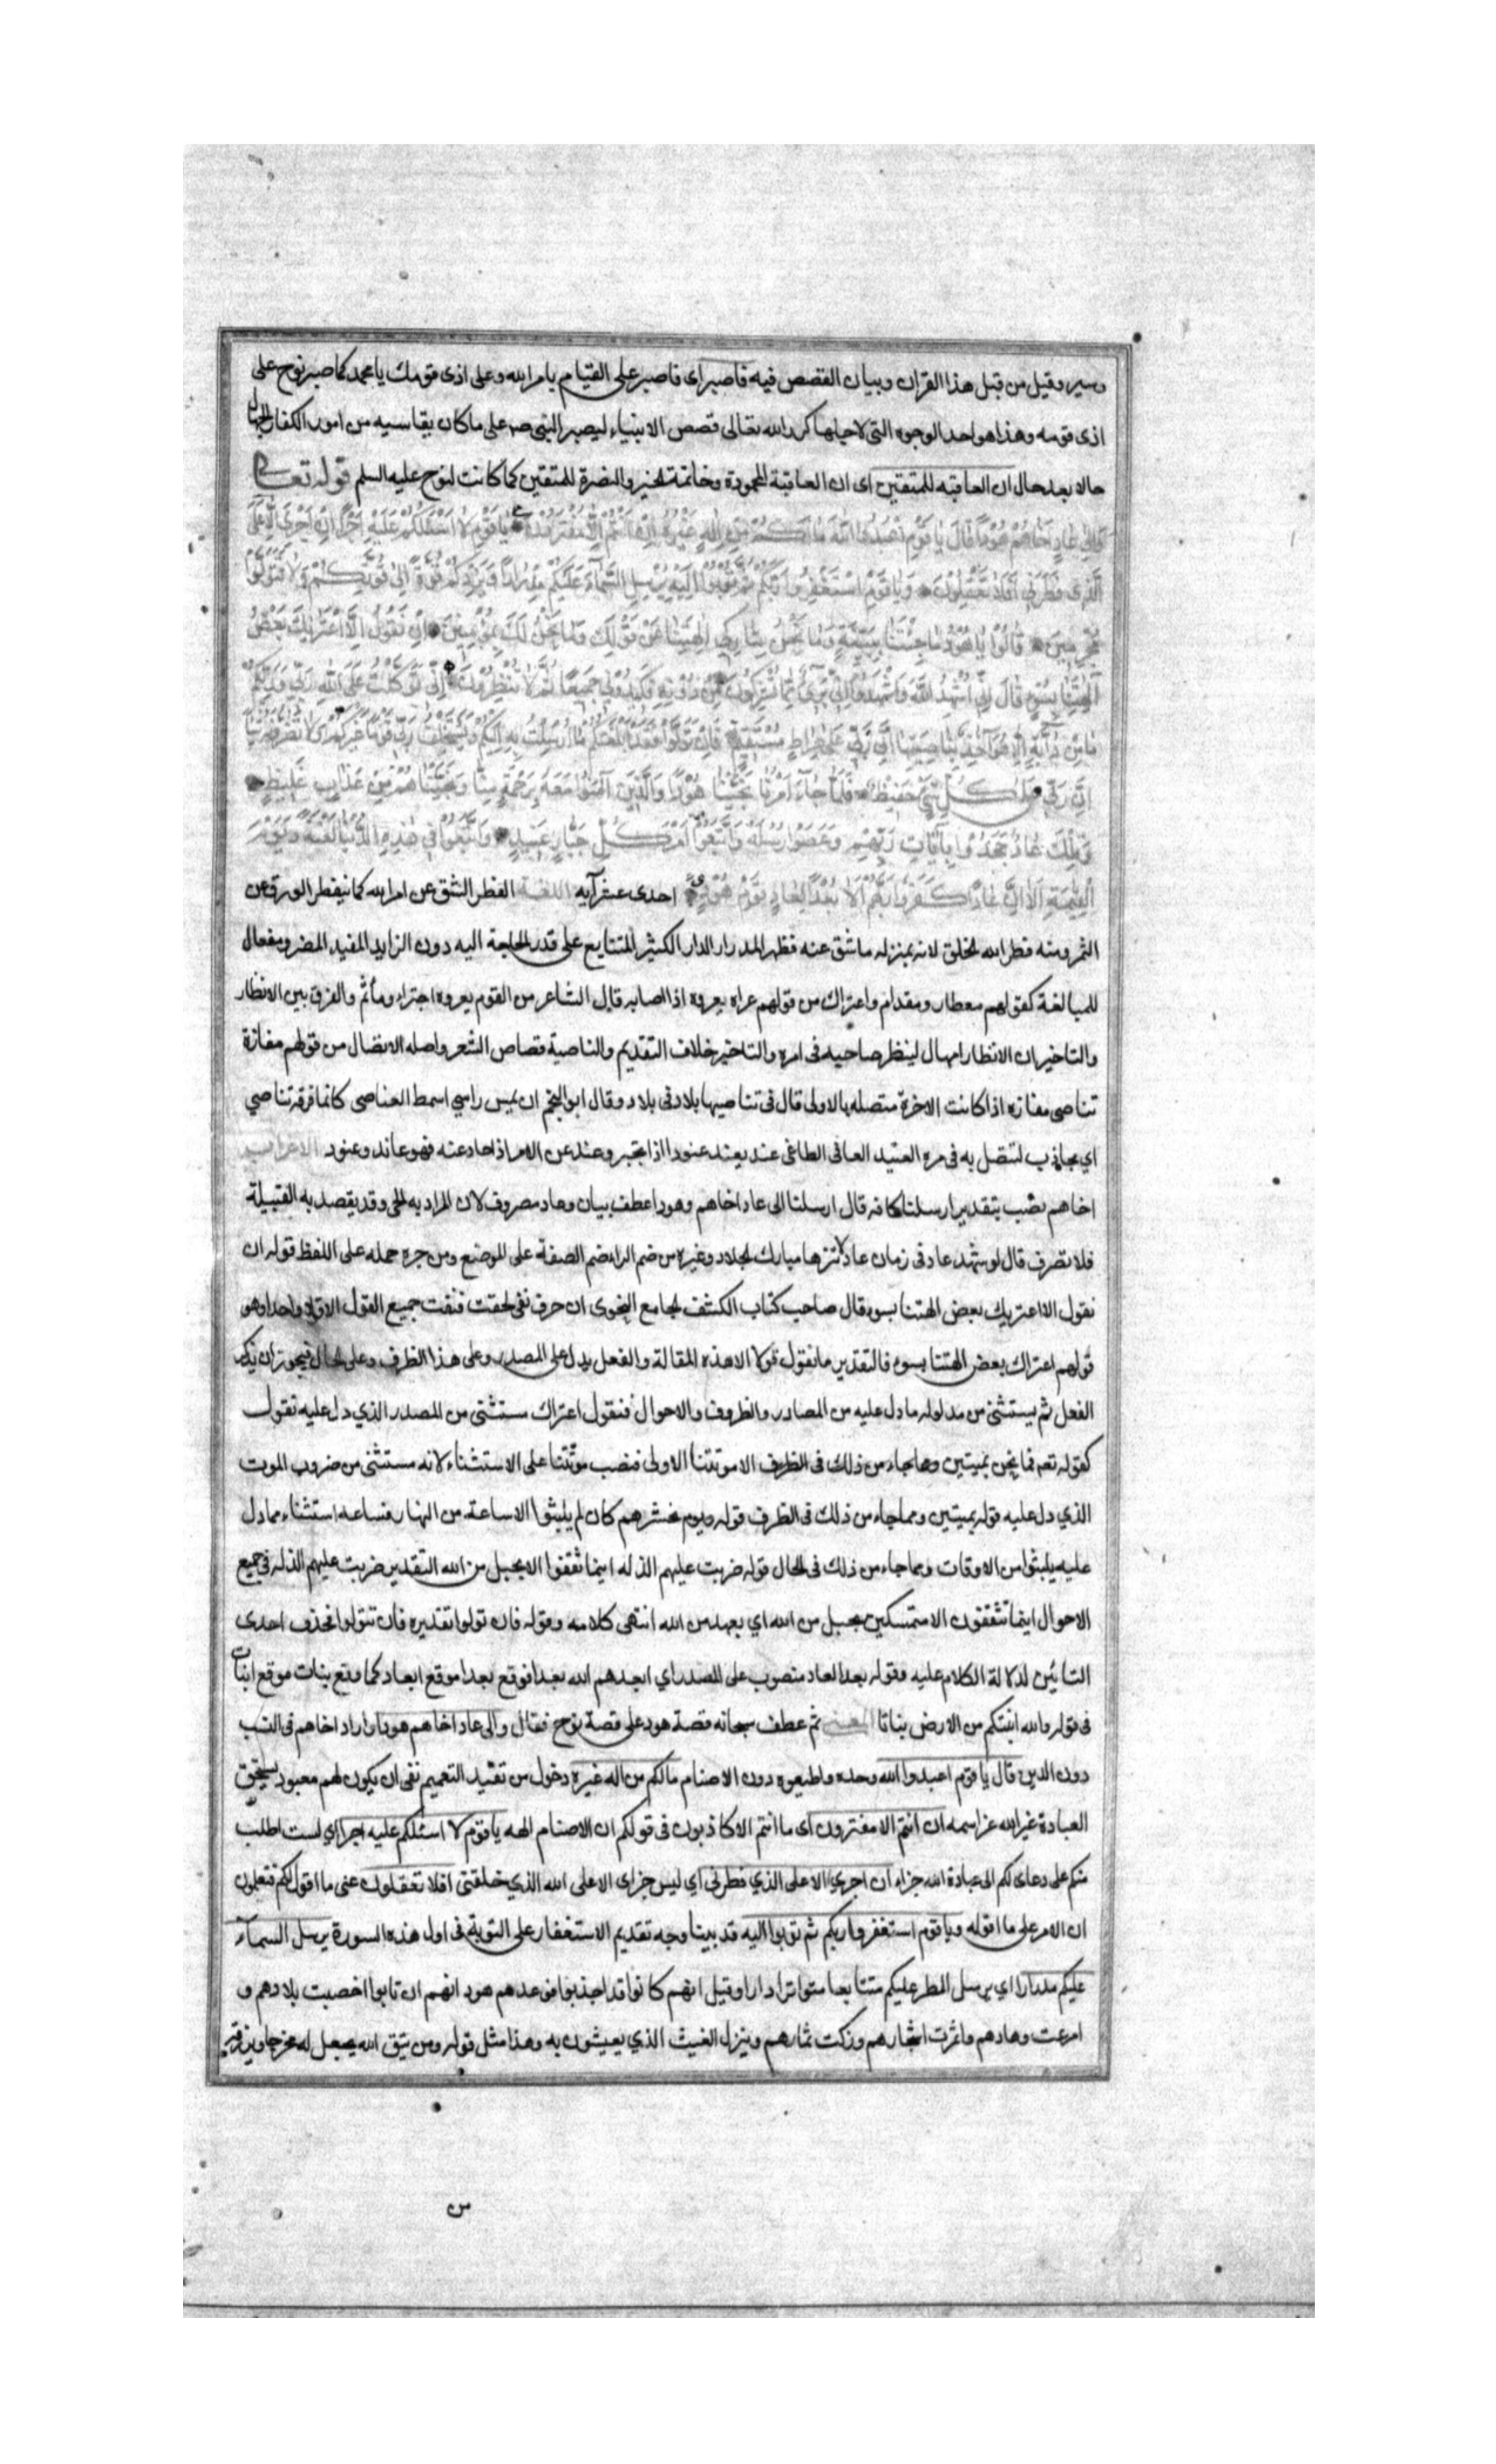 وسير وقيل من قبل هذا القران وبيان القصص فيه فاصبر اى فاصبر على القيام بامر الله وعلى اذى قومك يا محمد كما صبر نوح على
اذى قومه وهذا هو احد الوجوه التى لاجلها كرر الله تعالى قصص الانبياء ليصبر النبى صم على ما كان يقاسيه من امور الكفار الجهال
حالا بعد حال ان العاقبه للمتقين اى ان العاقبة المحمودة وخاتمة الخير والنصرة للمتقين كما كانت لنوح عليه السلم قوله تعالى
وَاِلى عَادٍ اَخَاهُمْ هُوْدًا قَالَ يَا قَوْمِ اعْبُدُوا اللّٰهَ مَا لَكُمْ مِنْ اِلٰهٍ غَيْرُهُ اِنْ اَنْتُمْ اِلَّا مُفْتَرُوْنَ يَا قَوْمِ لَا اَسْئَلُكُمْ عَلَيْهِ اَجْرًا اِنْ اَجْرِىَ اِلَّا عَلَى
الَّذِى فَطَرَنِى اَفَلَا تَعْقِلُوْنَ وَيَا قَوْمِ اسْتَغْفِرُوا رَبَّكُمْ ثُمَّ تُوْبُوْا اِلَيْهِ يُرْسِلِ السَّمَآءَ عَلَيْكُمْ مِدْرَارًا وَيَزِدْكُمْ قُوَّةً اِلىٰ قُوَّتِكُمْ وَلَا تَتَوَلَّوْا
مُجْرِمِيْنَ قَالُوْا يَا هُوْدُ مَا جِئْتَنَا بِبَيِّنَةٍ وَمَا نَحْنُ بِتَارِكِى اٰلِهَتِنَا عَنْ قَوْلِكَ وَمَا نَحْنُ لَكَ بِمُؤْمِنِيْنَ اِنْ نَقُوْلُ اِلَّا اعْتَرٰيكَ بَعْضُ
اٰلِهَتِنَا بِسُوْءٍ قَالَ اِنِّى اُشْهِدُ اللّٰهَ وَاشْهَدُوْا اَنِّى بَرِىْءٌ مِمَّا تُشْرِكُوْنَ مِنْ دُوْنِهِ فَكِيْدُوْنِى جَمِيْعًا ثُمَّ لَا تُنْظِرُوْنِ اِنِّى تَوَكَّلْتُ عَلَى اللّٰهِ رَبِّى وَرَبِّكُمْ
مَا مِنْ دَآبَّةٍ اِلَّا هُوَ اٰخِذٌ بِنَاصِيَتِهَا اِنَّ رَبِّى عَلىٰ صِرَاطٍ مُسْتَقِيْمٍ فَاِنْ تَوَلَّوْا فَقَدْ اَبْلَغْتُكُمْ مَا اُرْسِلْتُ بِهِ اِلَيْكُمْ وَيَسْتَخْلِفُ رَبِّى قَوْمًا غَيْرَكُمْ وَلَا تَضُرُّوْنَهُ شَيْئًا
اِنَّ رَبِّى عَلىٰ كُلِّ شَىْءٍ حَفِيْظٌ فَلَمَّا جَآءَ اَمْرُنَا نَجَّيْنَا هُوْدًا وَالَّذِيْنَ اٰمَنُوْا مَعَهُ بِرَحْمَةٍ مِنَّا وَنَجَّيْنَاهُمْ مِنْ عَذَابٍ غَلِيْظٍ
وَتِلْكَ عَادٌ جَحَدُوْا بِاٰيَاتِ رَبِّهِمْ وَعَصَوْا رُسُلَهُ وَاتَّبَعُوْا اَمْرَ كُلِّ جَبَّارٍ عَنِيْدٍ وَاُتْبِعُوْا فِى هٰذِهِ الدُّنْيَا لَعْنَةً وَيَوْمَ
الْقِيٰمَةِ اَلَا اِنَّ عَادًا كَفَرُوْا رَبَّهُمْ اَلَا بُعْدًا لِعَادٍ قَوْمِ هُوْدٍ احدى عشر آيه اللغة الفطر الشق عن امر الله كما ينفطر الورق عن
الثمر ومنه فطر الله الخلق لانه بمنزله ما شق عنه فظهر المدرار الدار الكثير المتتابع على قدر الحاجة اليه دون الزايد المفيد المضر ومفعال
للمبالغة كقولهم معطار ومقدام واعتراك من قولهم عراه يعروه اذا اصابه قال الشاعر من القوم يعروه اجتراء ومأثم والفرق بين الانظار
والتاخير ان الانظار امهال لينظر صاحبه فى امره والتاخير خلاف التقديم والناصية قصاص الشعر واصله الاتصال من قولهم مفازة
تناصى مفازه اذا كانت الاخرة متصله بالاولى قال فى تناصيها بلاد فى بلاد وقال ابو النجم ان يمس راسي اسمط العناصى كانما فرقه تناصي
اي يجاذب لتتصل به فى مره العنيد العاتى الطاغى عند يعند عنودا اذا تجبر وعند عن الامر اذا حاد عنه فهو عاند وعنود الاعراب
اخاهم نصب بتقدير ارسلنا كانه قال ارسلنا الى عاد اخاهم وهودا عطف بيان وعاد مصروف لان المراد به الحى وقد يقصد به القبيلة
فلا تصرف قال لو شهد عاد فى زمان عاد لابتزها مبارك الجلاد وغيره من ضم الراء ضم الصفة على الموضع ومن جره حمله على اللفظ قوله ان
نقول الا اعتريك بعض الهتنا بسوء قال صاحب كتاب الكشف الجامع النحوى ان حرف نفى لحقت فنفت جميع القول الا قولا واحدا وهو
قولهم اعتراك بعض الهتنا بسوء فالتقدير ما نقول قولا الا هذه المقالة والفعل يدل على المصدر وعلى هذا الظرف وعلى الحال فيجوز ان يذكر
الفعل ثم يستثنى من مدلوله ما دل عليه من المصادر والظروف والاحوال فنقول اعتراك مستثنى من المصدر الذي دل عليه نقول
كقوله تعم فما نحن بميتين ومما جاء من ذلك فى الظرف الا موتتنا الاولى فنصب موتتنا على الاستثناء لانه مستثنى من ضروب الموت
الذي دل عليه قوله بميتين ومما جاء من ذلك فى الظرف قوله ويوم نحشرهم كان لم يلبثوا الا ساعة من النهار فساعه استثناء مما دل
عليه يلبثوا من الاوقات ومما جاء من ذلك فى الحال قوله ضربت عليهم الذله اينما ثقفوا الا بحبل من الله التقدير ضربت عليهم الذله فى جميع
الاحوال اينما تثقفون الا متمسكين بحبل من الله اي بعهد من الله انتهى كلامه وقوله فان تولوا تقديره فان تتولوا فحذف احدى
التائين لدلالة الكلام عليه وقوله بعدا لعاد منصوب على المصدر اي ابعدهم الله بعدا فوقع بعدا موقع ابعاد كما وقع نبات موقع انبات
فى قوله والله انبتكم من الارض نباتا المعنى ثم عطف سبحانه قصة هود على قصة نوح فقال والى عاد اخاهم هودا واراد اخاهم فى النسب
دون الدين قال يا قوم اعبدوا الله وحده واطيعوه دون الاصنام ما لكم من اله غيره دخول من تفيد التعميم نفى ان يكون لهم معبود يستحق
العبادة غير الله عز اسمه ان انتم الا مفترون اى ما انتم الا كاذبون فى قولكم ان الاصنام الهه يا قوم لا اسئلكم عليه اجرا اي لست اطلب
منكم على دعاى لكم الى عبادة الله جزاء ان اجري الا على الذي فطرنى اي ليس جزاى الا على الله الذي خلقنى افلا تعقلون عنى ما اقول لكم فتعلمون
ان الامر على ما اقوله ويا قوم استغفروا ربكم ثم توبوا اليه قد بينا وجه تقديم الاستغفار على التوبة فى اول هذه السورة يرسل السمآء
عليكم مدرارا اي يرسل المطر عليكم متتابعا متواترا دارا وقيل انهم كانوا قد اجدبوا فوعدهم هود انهم ان تابوا اخصبت بلادهم و
امرعت وهادهم واثمرت اشجارهم وزكت ثمارهم وينزل الغيث الذي يعيشون به وهذا مثل قوله ومن يتق الله يجعل له مخرجا ويرزقه
من